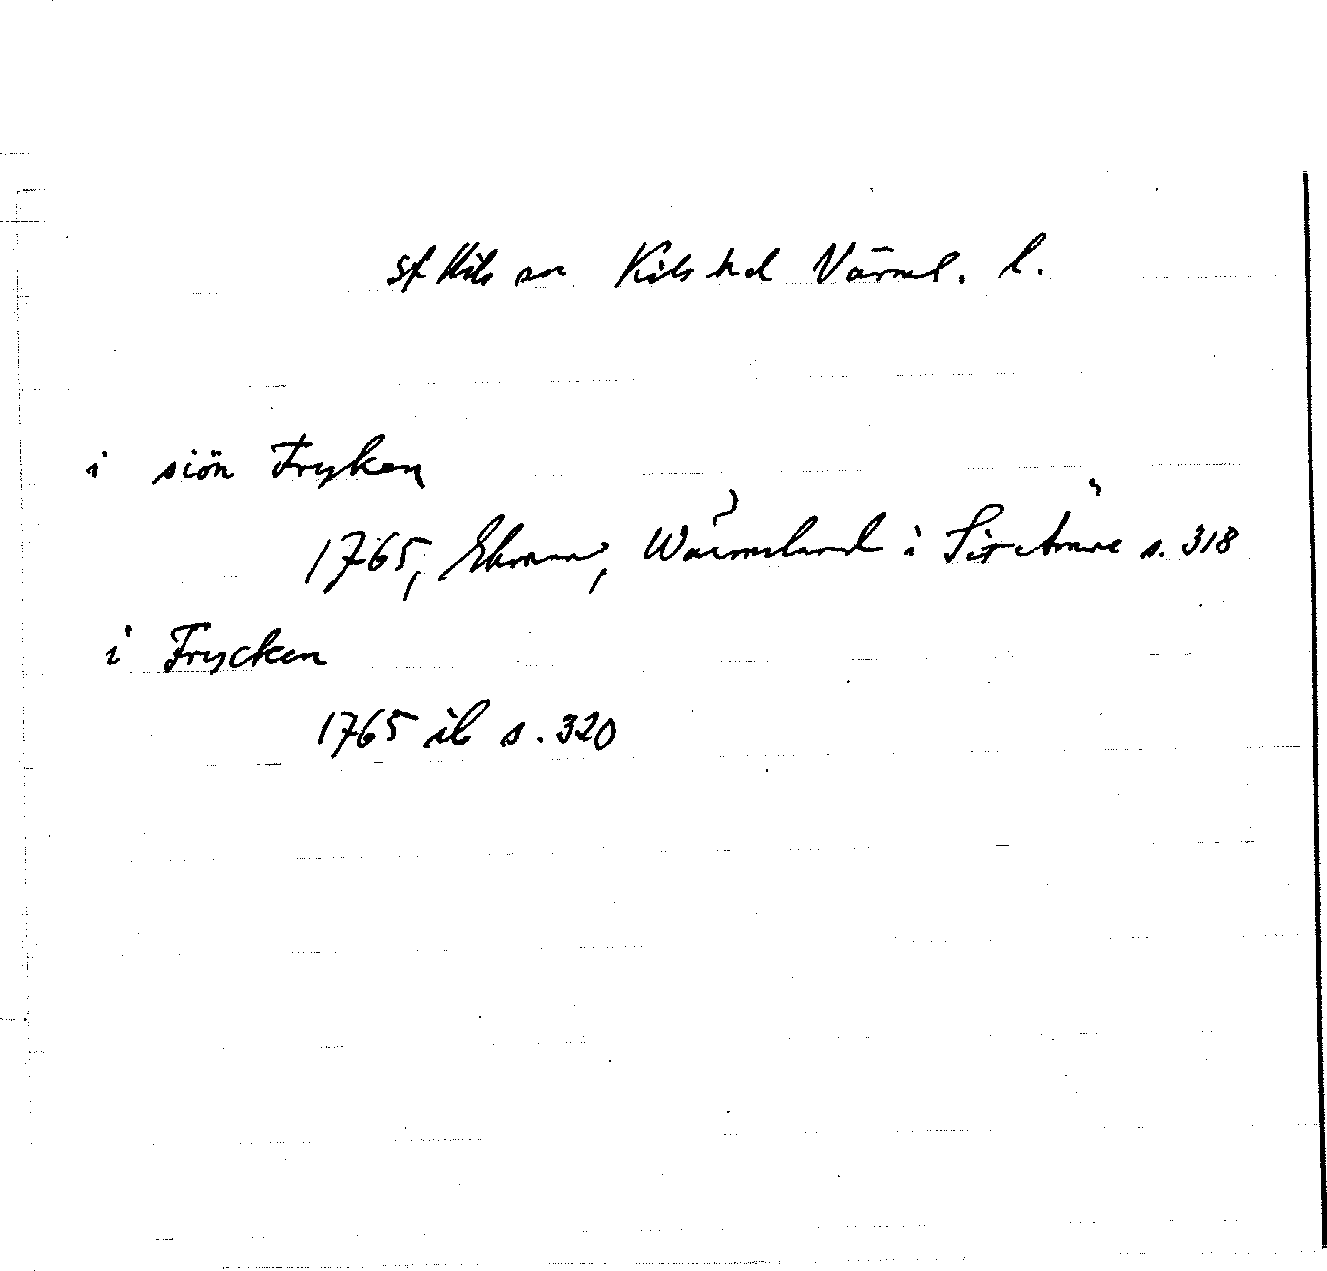 St Kils sn Kils hd Värml. l.
i siön Fryken
1765, Ekman, Wärmeland i Sitt Ämne s. 318
i Frycken
1765 ib s. 320